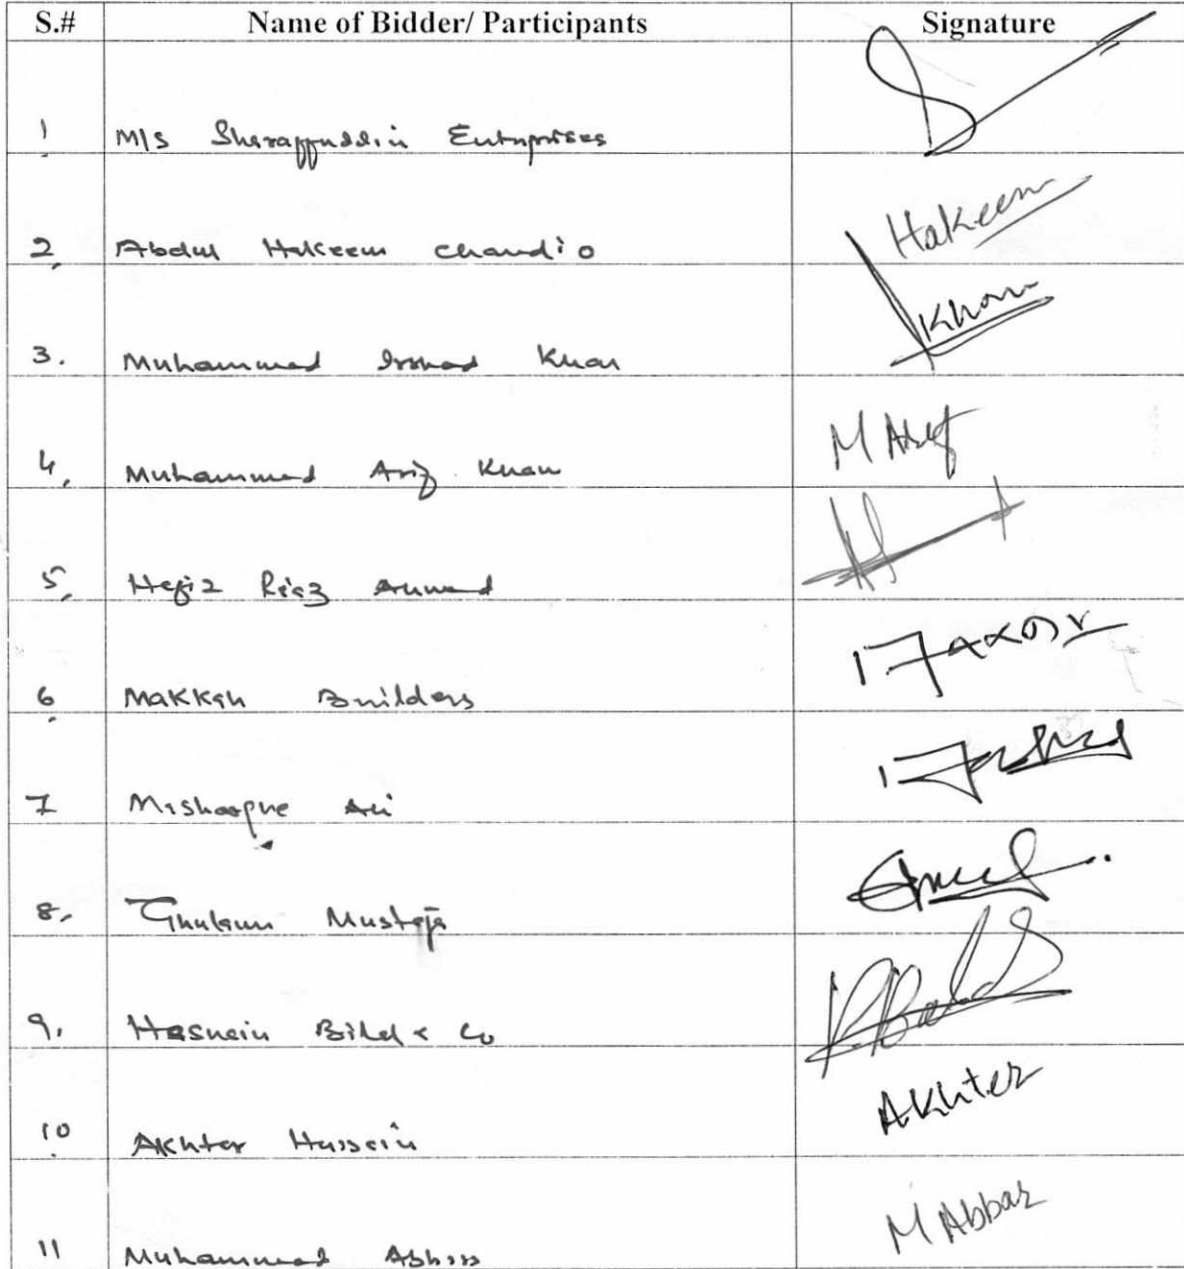 S.# Name of Bidder/ Participants Signature
1 M/S Sharaffuddin Enterprises
2, Abdul Hakeem Chandio Hakeem
3. Muhammad Irshad Khan Khan
4, Muhammad Arif Khan M Arif
5, Hafiz Riaz Ahmed
6 Makkah Builders
7 Mashooque Ali
8, Ghulam Mustafa
9, Hasnain Bild & Co
10 Akhter Hussain Akhter
11 Muhammad Abbas M Abbas